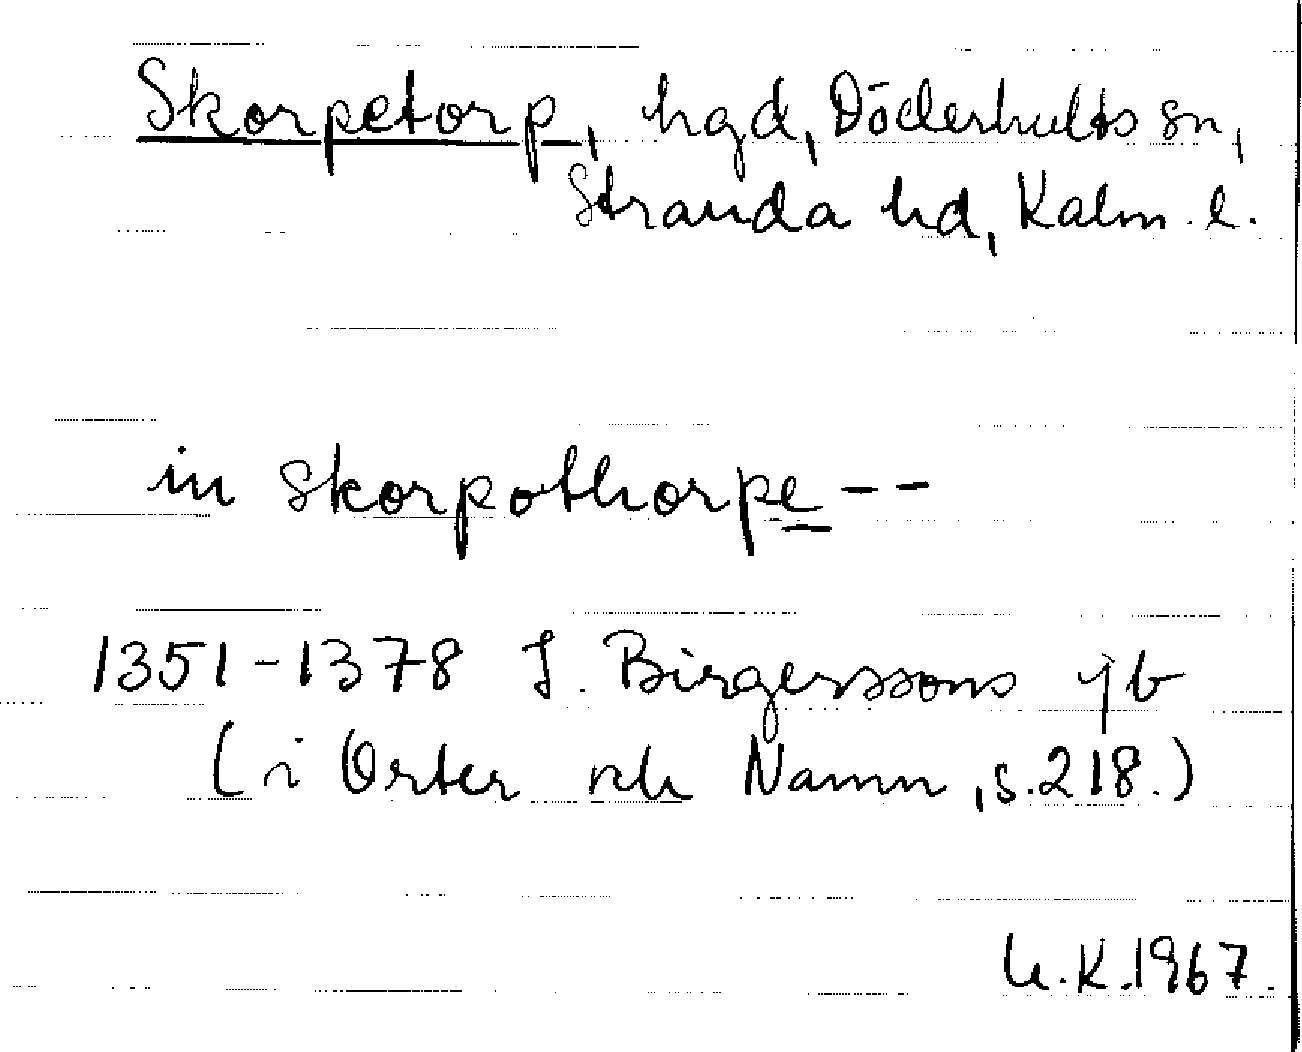 Skorpetorp, hgd, Döderhults sn,
Stranda hd, Kalm. l.
in skorpothorpe --
1351-1378 J. Birgerssons jb
(i Orter och Namn, s. 218.)
U.K. 1967.